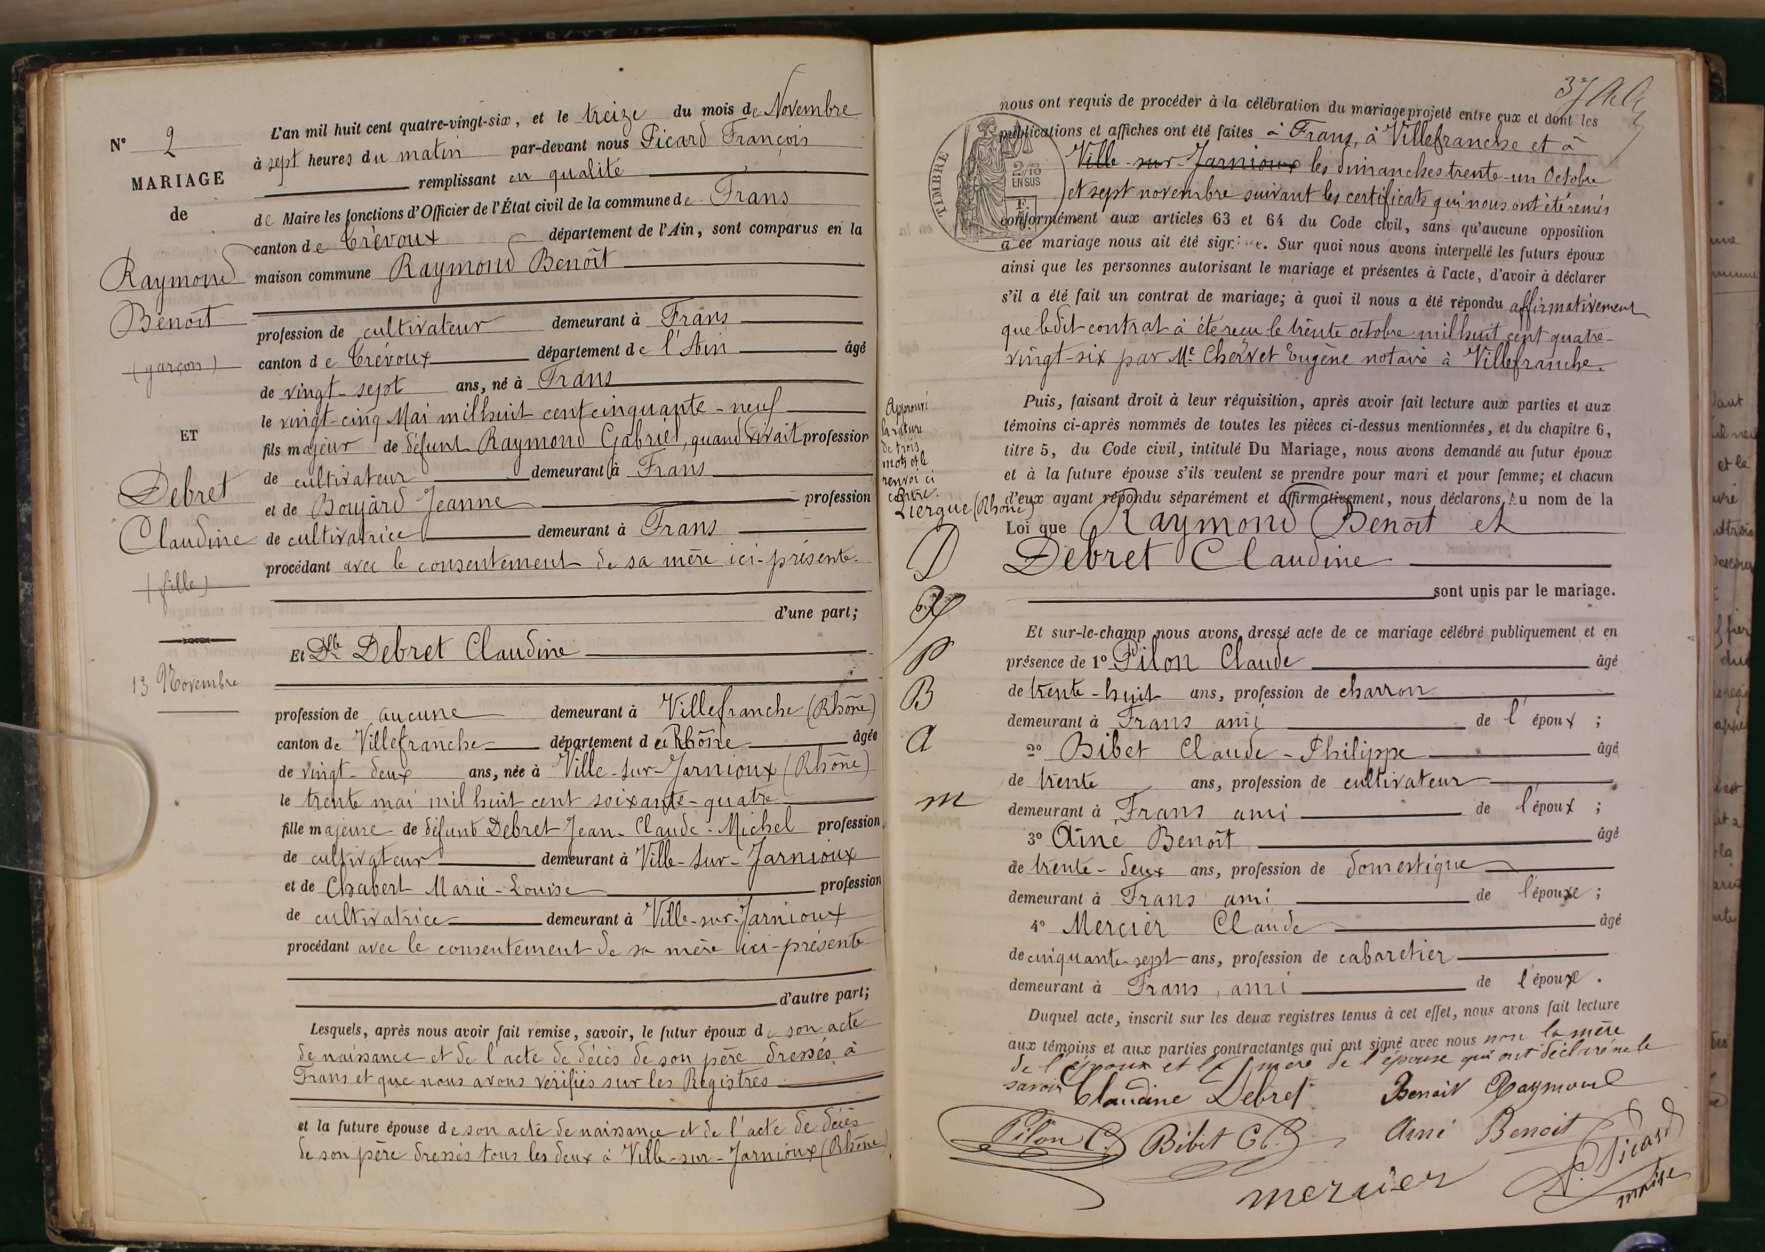 N° 2
MARIAGE
de
Raymond
Benoît
(garçon)
ET
Debret
Claudine
(fille)
13 Novembre
L'an mil huit cent quatre-vingt-six, et le treize du mois de Novembre
à sept heures du matin par-devant nous Picard François
remplissant en qualité
de Maire les fonctions d'Officier de l'État civil de la commune de Frans
canton de Trévoux département de l'Ain, sont comparus en la
maison commune Raymond Benoît
profession de cultivateur demeurant à Frans
canton de Trévoux département de l'Ain âgé
de vingt-sept ans, né à Frans
le vingt-cinq Mai mil huit cent cinquante-neuf
fils majeur de défunt Raymond Gabriel, quand vivait profession
de cultivateur demeurant à Frans
et de Boujard Jeanne profession
de cultivatrice demeurant à Frans
procédant avec le consentement de sa mère ici-présente.
d'une part;
Et Dlle Debret Claudine
profession de aucune demeurant à Villefranche (Rhône)
canton de Villefranche département du Rhône âgée
de vingt-deux ans, née à Ville-sur-Jarnioux (Rhône)
le trente mai mil huit cent soixante-quatre
fille majeure de défunt Debret Jean-Claude-Michel profession
de cultivateur demeurant à Ville-sur-Jarnioux
et de Chabert Marie-Louise profession
de cultivatrice demeurant à Ville-sur-Jarnioux
procédant avec le consentement de sa mère ici-présente
d'autre part;
Lesquels, après nous avoir fait remise, savoir, le futur époux de son acte
de naissance et de l'acte de décès de son père dressés à
Frans et que nous avons vérifiés sur les Registres
et la future épouse de son acte de naissance et de l'acte de décès
de son père dressés tous les deux à Ville-sur-Jarnioux (Rhône)
37
nous ont requis de procéder à la célébration du mariage projeté entre eux et dont les
publications et affiches ont été faites à Frans, à Villefranche et à
Ville-sur-Jarnioux les dimanches trente-un Octobre
et sept novembre suivant les certificats qui nous ont été remis
TIMBRE
2/10
EN SUS
conformément aux articles 63 et 64 du Code civil, sans qu'aucune opposition
à ce mariage nous ait été signifiée. Sur quoi nous avons interpellé les futurs époux
ainsi que les personnes autorisant le mariage et présentes à l'acte, d'avoir à déclarer
s'il a été fait un contrat de mariage; à quoi il nous a été répondu affirmativement
que ledit contrat à été reçu le trente octobre mil huit cent quatre-
vingt-six par Me Chervet Eugène notaire à Villefranche.
Approuvé
la rature
de trois
mots et le
renvoi ci
contre.
Liergue (Rhône)
D
R
P
B
A
M
Puis, faisant droit à leur réquisition, après avoir fait lecture aux parties et aux
témoins ci-après nommés de toutes les pièces ci-dessus mentionnées, et du chapitre 6,
titre 5, du Code civil, intitulé Du Mariage, nous avons demandé au futur époux
et à la future épouse s'ils veulent se prendre pour mari et pour femme; et chacun
d'eux ayant répondu séparément et affirmativement, nous déclarons, au nom de la
Loi que Raymond Benoît et
Debret Claudine
sont unis par le mariage.
Et sur-le-champ nous avons dressé acte de ce mariage célébré publiquement et en
présence de 1° Pilon Claude âgé
de trente-huit ans, profession de charron
demeurant à Frans ami de l'époux ;
2° Bibet Claude-Philippe âgé
de trente ans, profession de cultivateur
demeurant à Frans ami de l'époux ;
3° Aîné Benoît âgé
de trente-deux ans, profession de domestique
demeurant à Frans ami de l'épouxe ;
4° Mercier Claude âgé
de cinquante-sept ans, profession de cabaretier
demeurant à Frans, ami de l'épouxe.
Duquel acte, inscrit sur les deux registres tenus à cet effet, nous avons fait lecture
aux témoins et aux parties contractantes qui ont signé avec nous non la mère
de l'époux et la mère de l'épouse qui ont déclaré ne le
savoir Claudine Debret Benoit Raymond
Pilon C. Bibet Cl. Ainé Benoit
mercier
F. Picard
maire